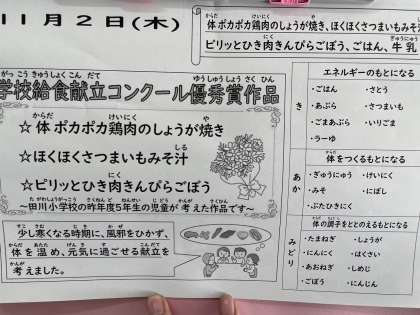 11月2日(木)
体ポカポカ鶏肉のしょうが焼き、ほくほくさつまいもみそ汁
ピリッとひき肉きんぴらごぼう、ごはん、牛乳
学校給食献立コンクール優秀賞作品
☆体ポカポカ鶏肉のしょうが焼き
☆ほくほくさつまいもみそ汁
☆ピリッとひき肉きんぴらごぼう
～田川小学校の昨年度5年生の児童が考えた作品です～
少し寒くなる時期に、風邪をひかず、
体を温め、元気に過ごせる献立を
考えました。
エネルギーのもとになる
き
・ごはん ・さとう
・あぶら ・さつまいも
・ごまあぶら ・いりごま
・ラーゆ
体をつくるもとになる
あか
・ぎゅうにゅう ・けいにく
・みそ ・にぼし
・ぶたひきにく
体の調子をととのえるもとになる
みどり
・たまねぎ ・しょうが
・にんにく ・はくさい
・あおねぎ ・しめじ
・ごぼう ・にんじん